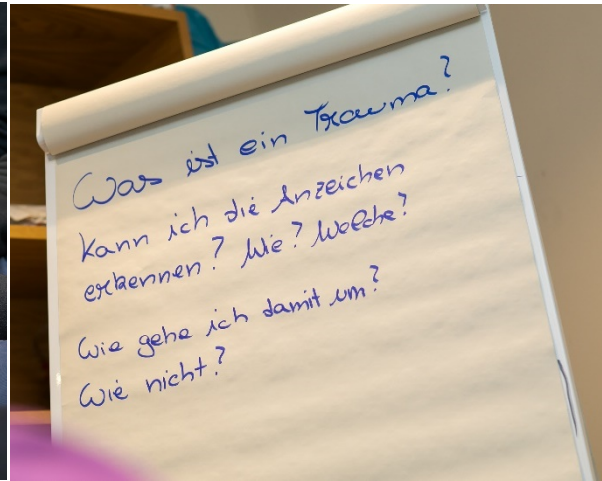 Was ist ein Trauma?
Kann ich die Anzeichen
erkennen? Wie? Welche?
Wie gehe ich damit um?
Wie nicht?